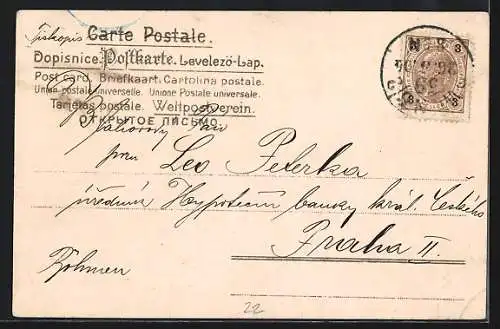 Tiskopis Carte Postale.
Dopisnice. Postkarte. Levelező-Lap.
Post card. Briefkaart. Cartolina postale.
Union postale universelle. Unione Postale universale.
Tarjetas postale. Weltpostverein.
ОТКРЫТОЕ ПИСЬМО.
3 3
3 3
Pan
pan Leo Peterka
úředník Hypoteční banky král. Českého
Praha II.
Böhmen
22